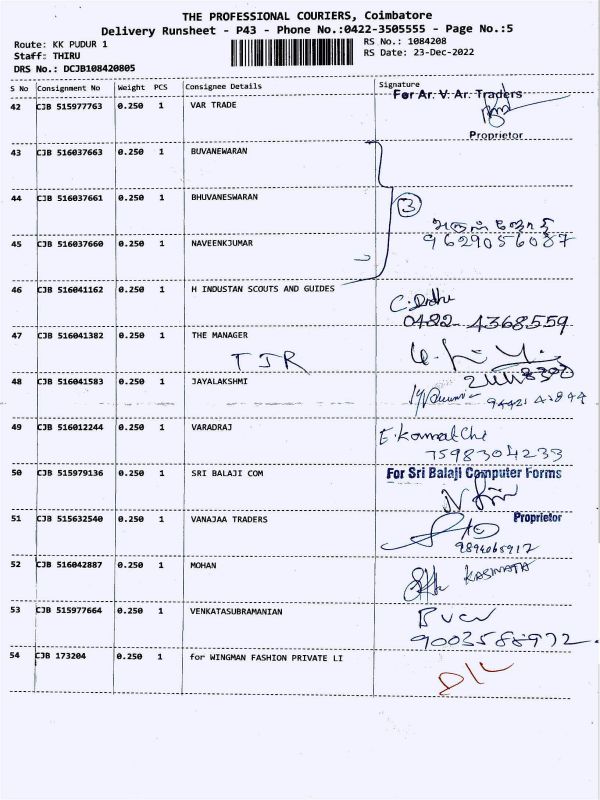 THE PROFESSIONAL COURIERS, Coimbatore
Delivery Runsheet - P43 - Phone No.:0422-3505555 - Page No.:5
Route: KK PUDUR 1
Staff: THIRU
DRS No.: DCJB108420805
RS No.: 1084208
RS Date: 23-Dec-2022
S No Consignment No Weight PCS Consignee Details Signature
42 CJB 515977763 0.250 1 VAR TRADE For Ar. V. Ar. Traders
Proprietor
43 CJB 516037663 0.250 1 BUVANEWARAN
44 CJB 516037661 0.250 1 BHUVANESWARAN
3
9629056087
45 CJB 516037660 0.250 1 NAVEENKJUMAR
46 CJB 516041162 0.250 1 H INDUSTAN SCOUTS AND GUIDES
0482-4368559
47 CJB 516041382 0.250 1 THE MANAGER
TJR
48 CJB 516041583 0.250 1 JAYALAKSHMI
49 CJB 516012244 0.250 1 VARADRAJ E. Kamatchi
7598304233
50 CJB 515979136 0.250 1 SRI BALAJI COM For Sri Balaji Computer Forms
Proprietor
51 CJB 515632540 0.250 1 VANAJAA TRADERS
9894065917
52 CJB 516042887 0.250 1 MOHAN
53 CJB 515977664 0.250 1 VENKATASUBRAMANIAN
9003588972
54 CJB 173204 0.250 1 for WINGMAN FASHION PRIVATE LI